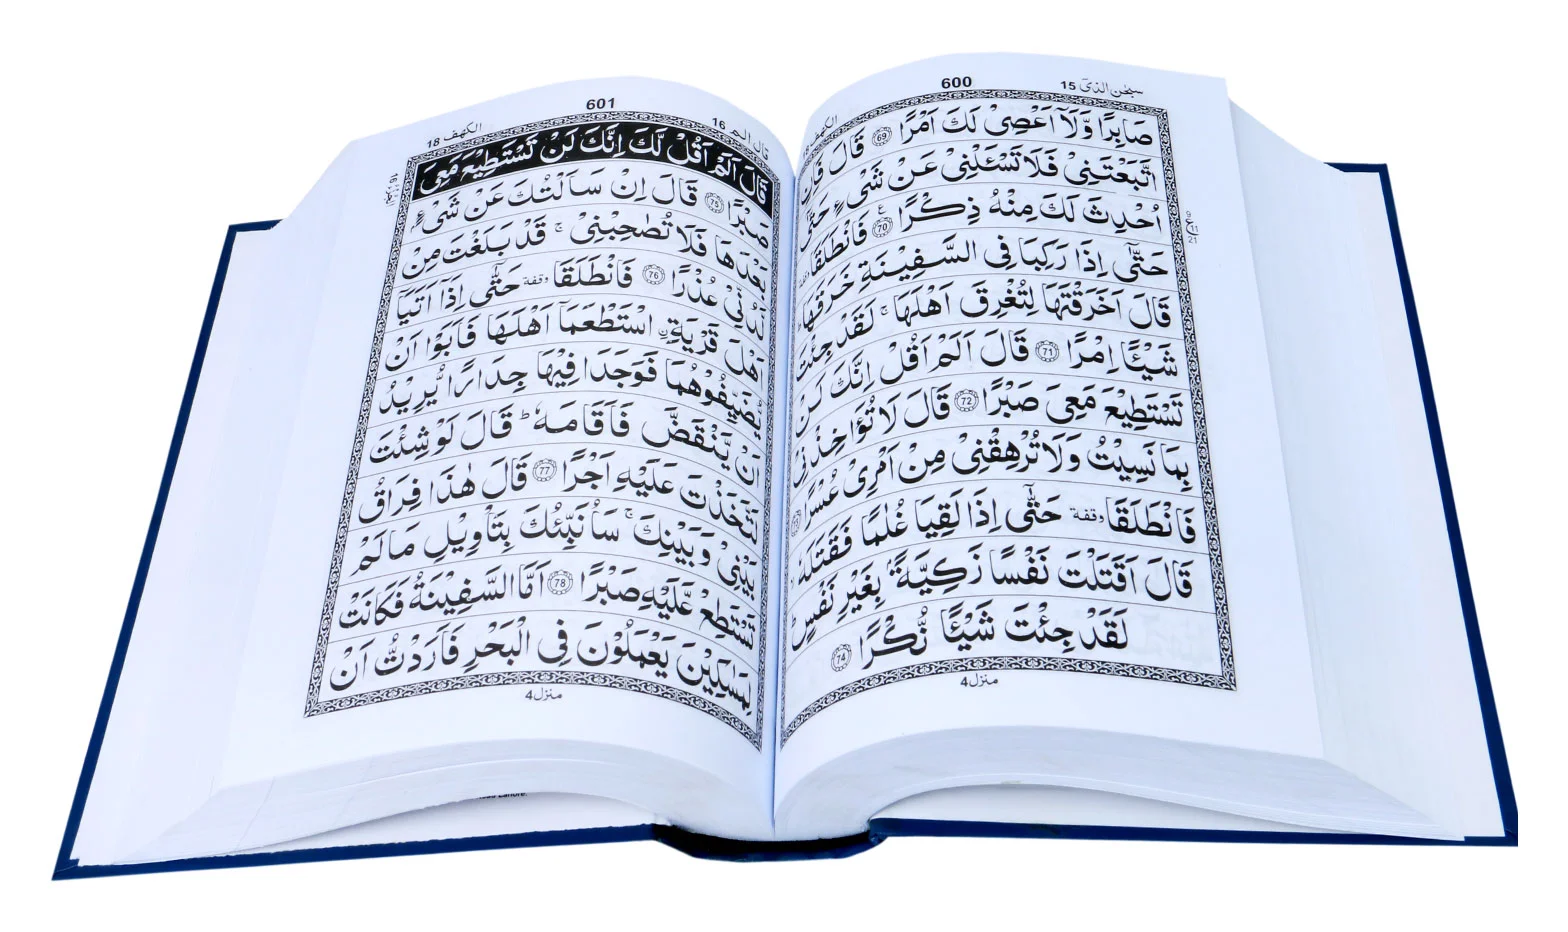 600
سبحٰن الذیٓ 15
الكهف 18
صَابِرًا وَّلَاۤ اَعْصِیْ لَكَ اَمْرًا ۝69 قَالَ فَاِنِ
اتَّبَعْتَنِیْ فَلَا تَسْـَٔلْنِیْ عَنْ شَیْءٍ حَتّٰۤی
اُحْدِثَ لَكَ مِنْهُ ذِكْرًا ۝70 ع فَانْطَلَقَا وقفة
حَتّٰۤی اِذَا رَكِبَا فِی السَّفِیْنَةِ خَرَقَهَا ؕ
قَالَ اَخَرَقْتَهَا لِتُغْرِقَ اَهْلَهَا ۚ لَقَدْ جِئْتَ
شَیْـًٔا اِمْرًا ۝71 قَالَ اَلَمْ اَقُلْ اِنَّكَ لَنْ
تَسْتَطِیْعَ مَعِیَ صَبْرًا ۝72 قَالَ لَا تُؤَاخِذْنِیْ
بِمَا نَسِیْتُ وَلَا تُرْهِقْنِیْ مِنْ اَمْرِیْ عُسْرًا ۝73
فَانْطَلَقَا وقفة حَتّٰۤی اِذَا لَقِیَا غُلٰمًا فَقَتَلَهٗ ۙ
قَالَ اَقَتَلْتَ نَفْسًا زَكِیَّةًۢ بِغَیْرِ نَفْسٍ ؕ
لَقَدْ جِئْتَ شَیْـًٔا نُّكْرًا ۝74
منزل 4
601
قال الم 16
الكهف 18
قَالَ اَلَمْ اَقُلْ لَّكَ اِنَّكَ لَنْ تَسْتَطِیْعَ مَعِیَ
صَبْرًا ۝75 قَالَ اِنْ سَاَلْتُكَ عَنْ شَیْءٍۭ
بَعْدَهَا فَلَا تُصٰحِبْنِیْ ۚ قَدْ بَلَغْتَ مِنْ
لَّدُنِّیْ عُذْرًا ۝76 فَانْطَلَقَا وقفة حَتّٰۤی اِذَاۤ اَتَیَاۤ
اَهْلَ قَرْیَةِ ِ۟اسْتَطْعَمَاۤ اَهْلَهَا فَاَبَوْا اَنْ
یُّضَیِّفُوْهُمَا فَوَجَدَا فِیْهَا جِدَارًا یُّرِیْدُ
اَنْ یَّنْقَضَّ فَاَقَامَهٗ ؕ قَالَ لَوْ شِئْتَ
لَتَّخَذْتَ عَلَیْهِ اَجْرًا ۝77 قَالَ هٰذَا فِرَاقُ
بَیْنِیْ وَبَیْنِكَ ۚ سَاُنَبِّئُكَ بِتَاْوِیْلِ مَا لَمْ
تَسْتَطِعْ عَّلَیْهِ صَبْرًا ۝78 اَمَّا السَّفِیْنَةُ فَكَانَتْ
لِمَسٰكِیْنَ یَعْمَلُوْنَ فِی الْبَحْرِ فَاَرَدْتُّ اَنْ
منزل 4